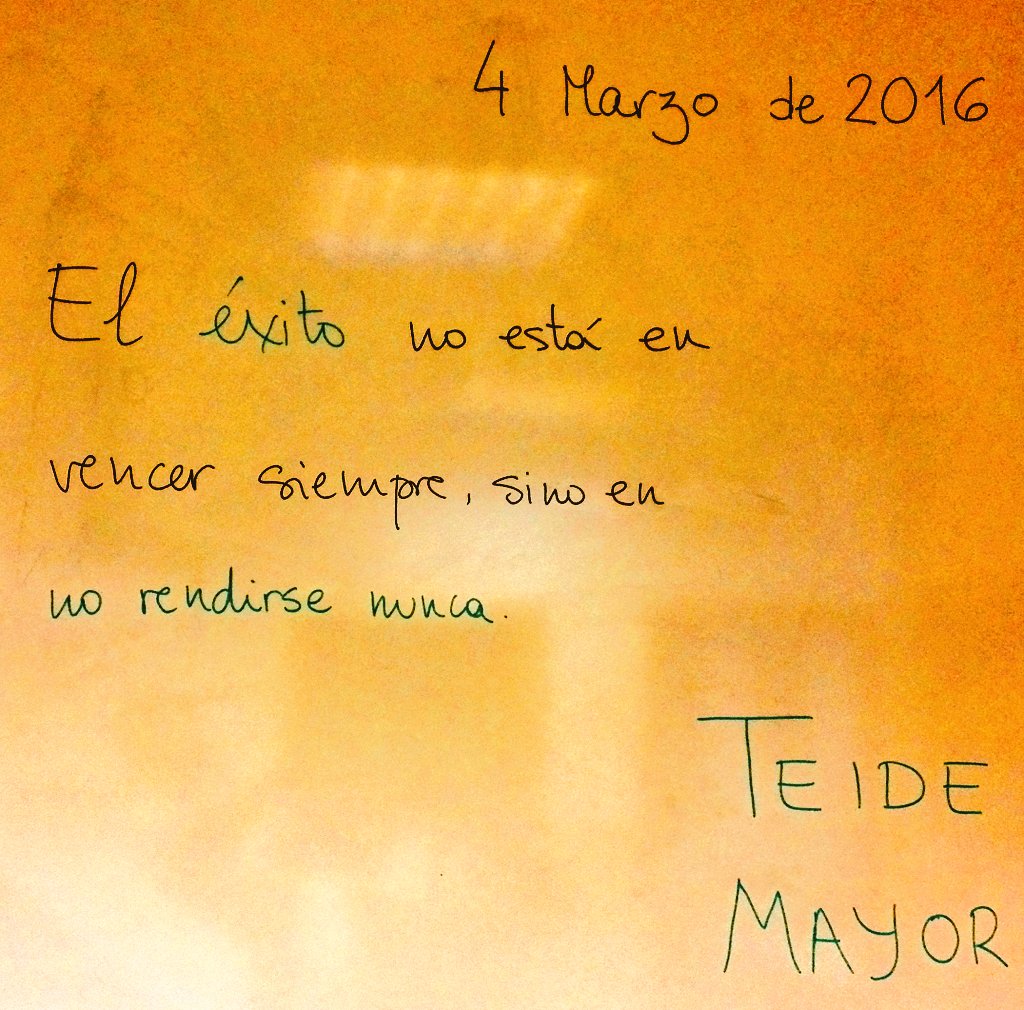 4 Marzo de 2016
El éxito no está en
vencer siempre, sino en
no rendirse nunca.
TEIDE
MAYOR